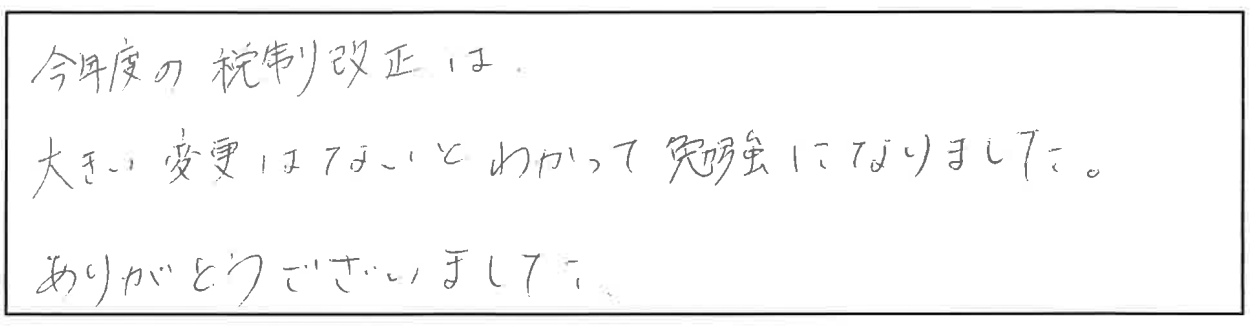 今年度の税制改正は
大きい変更はないとわかって勉強になりました。
ありがとうございました